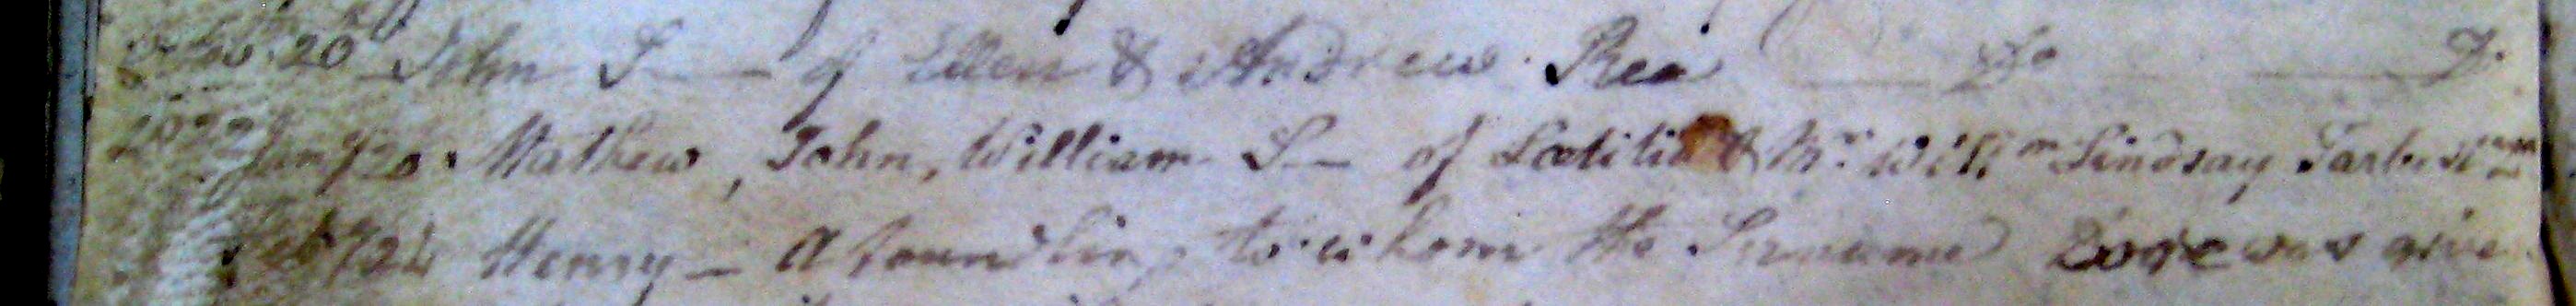 20 John S— of Ellen & Andrew Rea — Do —
1822 Jany 20. Mathew, John, William S— of Lætitia & Mr. Willm Lindsay
Feby 24 Henry — A foundling to whom the Surname was give